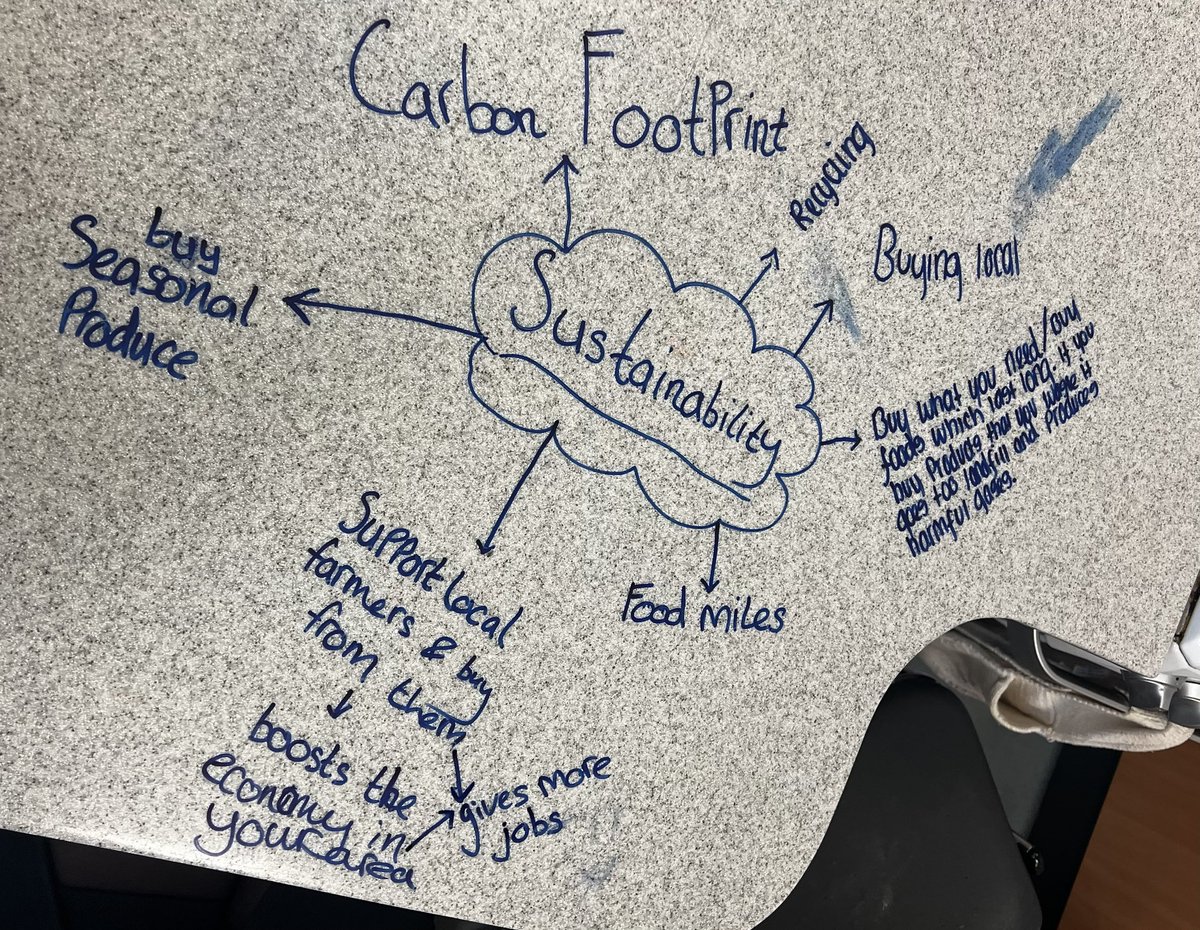 Carbon FootPrint
Recycling
Buying local
buy
Seasonal
Produce
Sustainability
Buy what you need/buy
foods which last long. if you
buy Products that you where it
goes too landfill and Produces
harmful gases.
Support local
farmers & buy
from them
Food miles
boosts the
economy in
your area
gives more
jobs